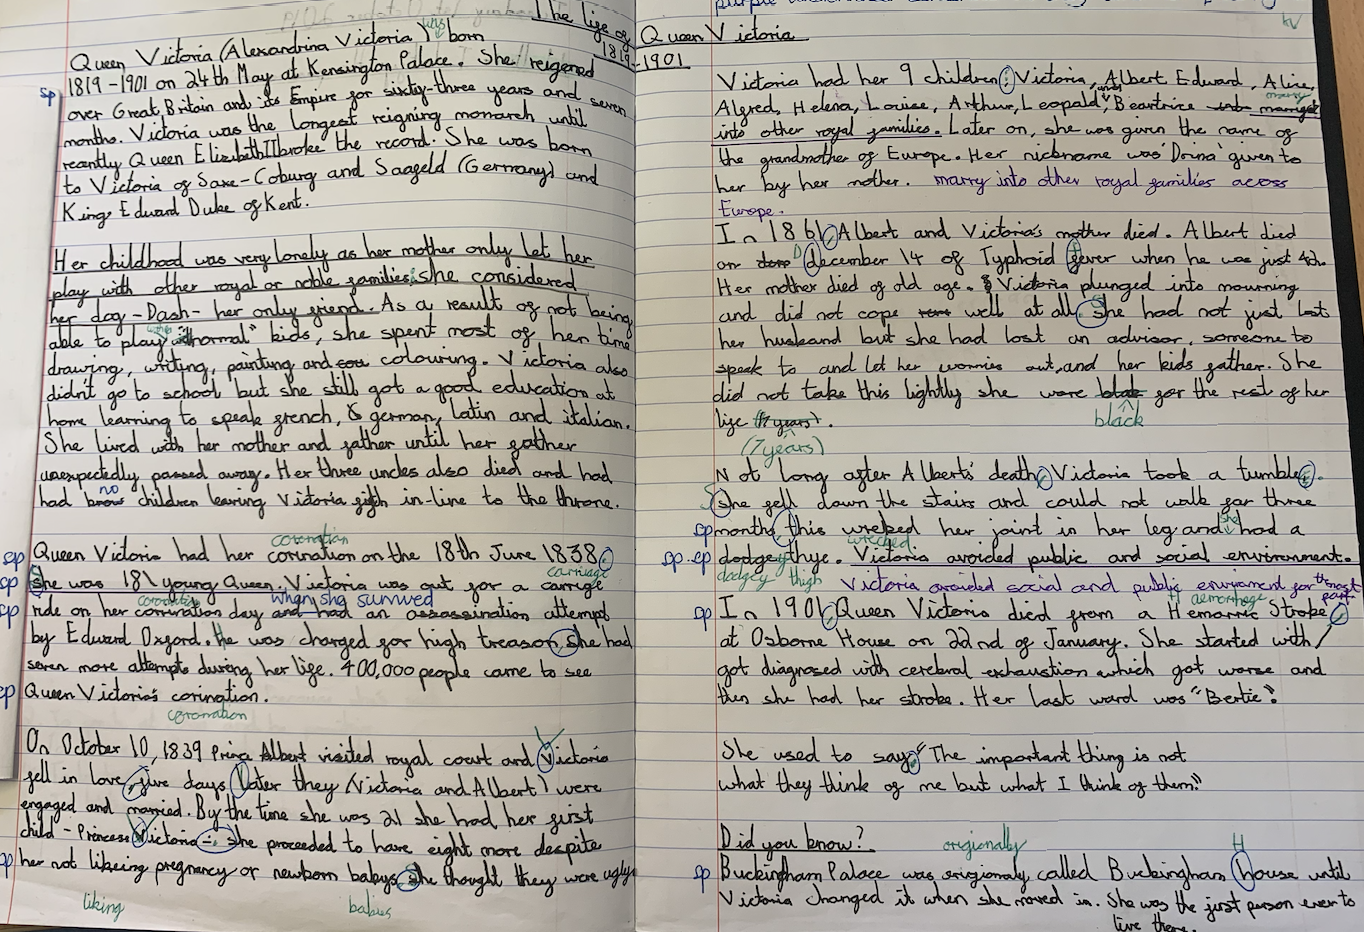 The life of Queen Victoria
1819-1901
Queen Victoria (Alexandrina Victoria) was born
1819-1901 on 24th May at Kensington Palace. She reigened
sp
over Great Britain and its Empire for sixty-three years and seven
months. Victoria was the longest reigning monarch until
recently Queen Elizabeth II broke the record. She was born
to Victoria of Saxe-Coburg and Saageld (Germany) and
King, Edward Duke of Kent.
Her childhood was very lonely as her mother only let her
play with other royal or noble families; she considered
her dog -Dash- her only friend. As a result of not being
able to play with "normal" kids, she spent most of her time
drawing, writing, painting and colouring. Victoria also
didn't go to school but she still got a good education at
home learning to speak french, german, latin and italian.
She lived with her mother and father until her father
unexpectedly passed away. Her three uncles also died and had
had no children leaving Victoria fifth in-line to the throne.
coronation
sp Queen Victoria had her corination on the 18th June 1838.
carriage
sp She was 18 \ young Queen. Victoria was out for a carrige
coronation when she survived
sp ride on her corination day and had an assassination attempt
by Edward Oxford. He was charged for high treason, she had
seven more attempts during her life. 400,000 people came to see
sp Queen Victoria's corination.
coronation
On October 10, 1839 Prince Albert visited royal court and Victoria
fell in love, five days later they (Victoria and Albert) were
engaged and married. By the time she was 21 she had her first
child - Princess Victoria -. she proceeded to have eight more despite
sp her not likeing pregnancy or newborn babys. She thought they were ugly
liking babies
Victoria had her 9 children: Victoria, Albert Edward, Alice,
Alfred, Helena, Louise, Arthur, Leopald, and Beartrice marriged
marry
into other royal families. Later on, she was given the name of
the grandmother of Europe. Her nickname was 'Drina' given to
her by her mother. marry into other royal families across
Europe.
In 1861, Albert and Victoria's mother died. Albert died
on December 14 of Typhoid fever when he was just 42.
Her mother died of old age. Victoria plunged into mourning
and did not cope well at all. She had not just lost
her husband but she had lost an advisor, someone to
speak to and let her worries out, and her kids father. She
did not take this lightly she wore blak for the rest of her
black
life (7 years).
(7 years)
Not long after Albert's death, Victoria took a tumble.
She fell down the stairs and could not walk for three
sp months, this wreked her joint in her leg and she had a
wrecked
sp sp dodgey thye. Victoria avoided public and social environment.
dodgey thigh Victoria avoided social and public enviroment for the most part
Haemorrhage
sp In 1901, Queen Victoria died from a Hemorric Stroke,
at Osborne House on 22nd of January. She started with/
got diagnosed with cerebral exhaustion which got worse and
then she had her stroke. Her last word was "Bertie".
She used to say, "The important thing is not
what they think of me but what I think of them."
Did you know?
origionally
H
sp Buckingham Palace was origionaly called Buckingham house until
Victoria changed it when she moved in. She was the first person ever to
live there.